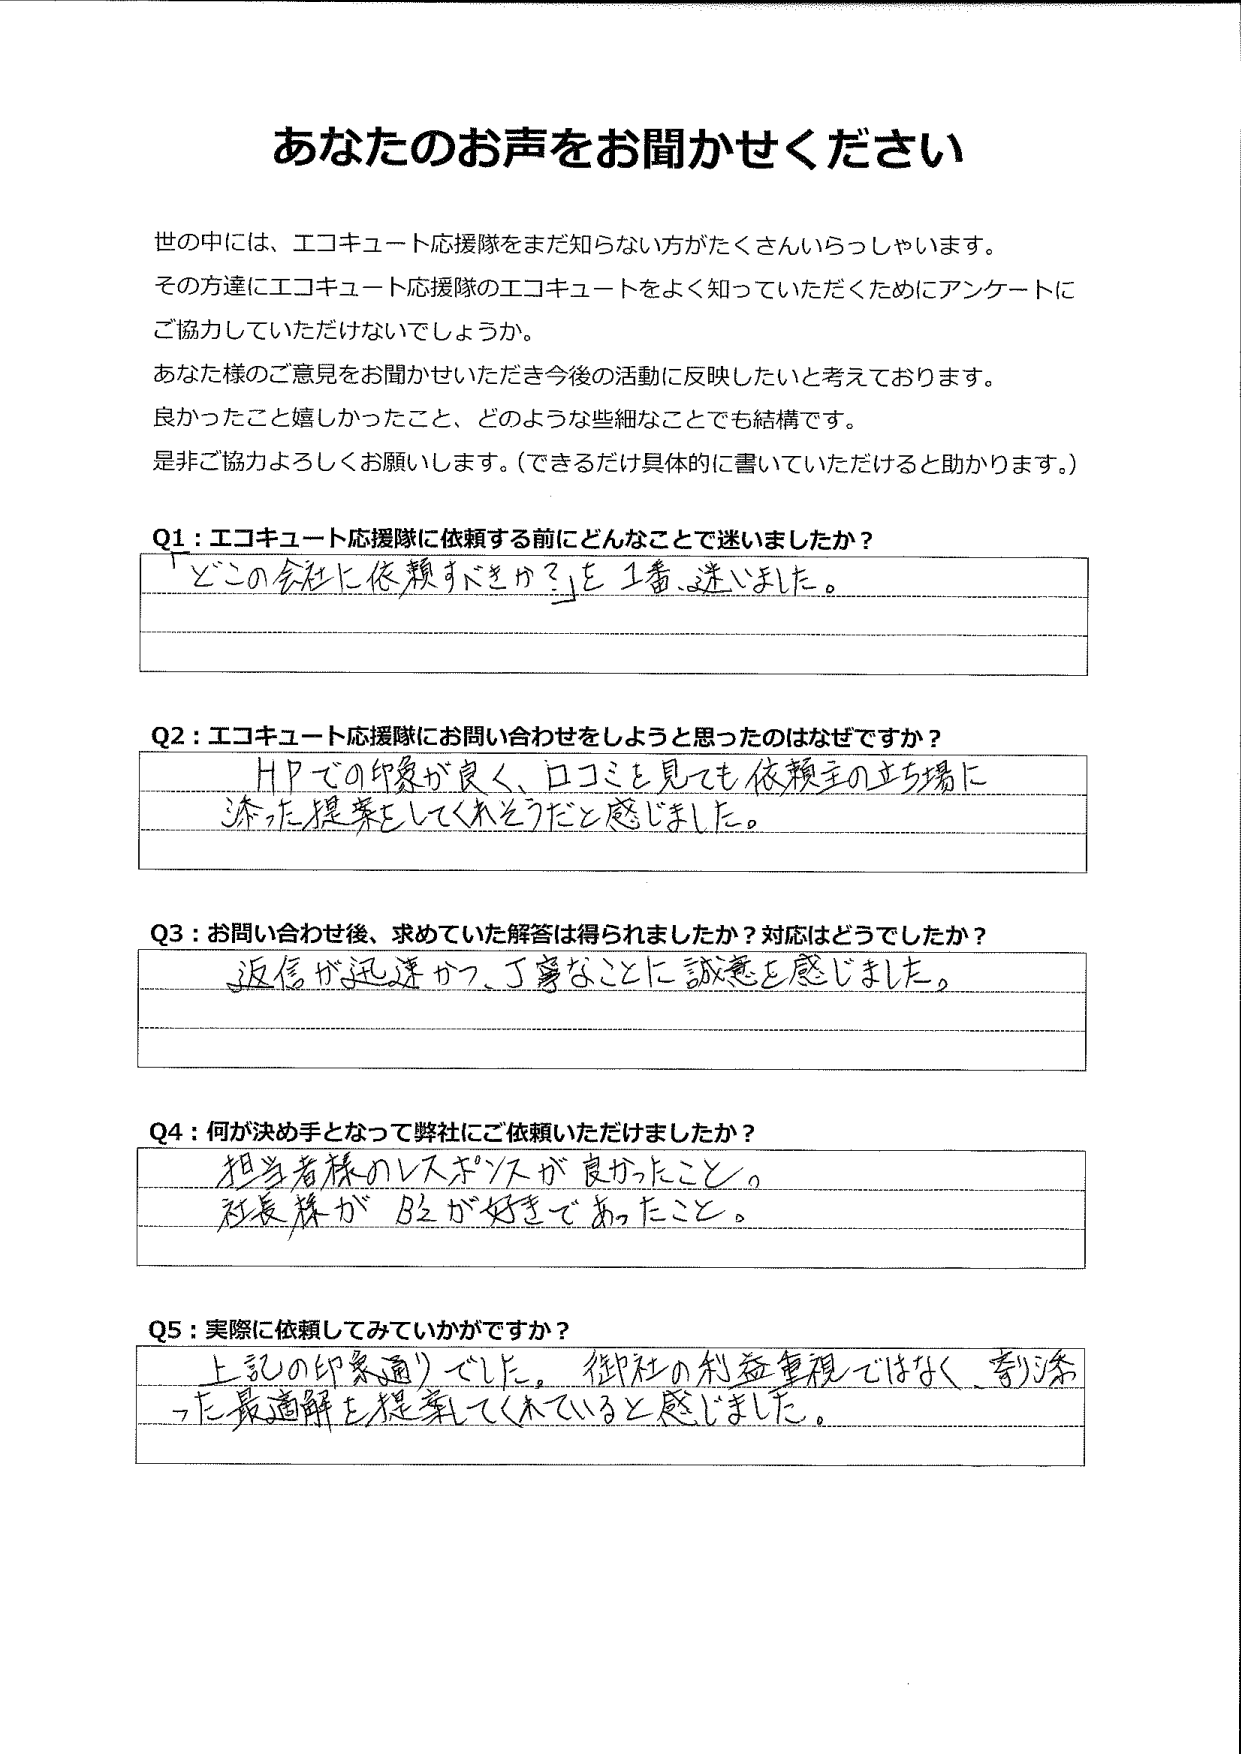 あなたのお声をお聞かせください
世の中には、エコキュート応援隊をまだ知らない方がたくさんいらっしゃいます。
その方達にエコキュート応援隊のエコキュートをよく知っていただくためにアンケートに
ご協力していただけないでしょうか。
あなた様のご意見をお聞かせいただき今後の活動に反映したいと考えております。
良かったこと嬉しかったこと、どのような些細なことでも結構です。
是非ご協力よろしくお願いします。（できるだけ具体的に書いていただけると助かります。）
Q1：エコキュート応援隊に依頼する前にどんなことで迷いましたか？
「どこの会社に依頼すべきか？」を1番、迷いました。
Q2：エコキュート応援隊にお問い合わせをしようと思ったのはなぜですか？
HPでの印象が良く、口コミを見ても依頼主の立ち場に
添った提案をしてくれそうだと感じました。
Q3：お問い合わせ後、求めていた解答は得られましたか？対応はどうでしたか？
返信が迅速かつ、丁寧なことに誠意を感じました。
Q4：何が決め手となって弊社にご依頼いただけましたか？
担当者様のレスポンスが良かったこと。
社長様がB'zが好きであったこと。
Q5：実際に依頼してみていかがですか？
上記の印象通りでした。御社の利益重視ではなく、寄り添
った最適解を提案してくれていると感じました。